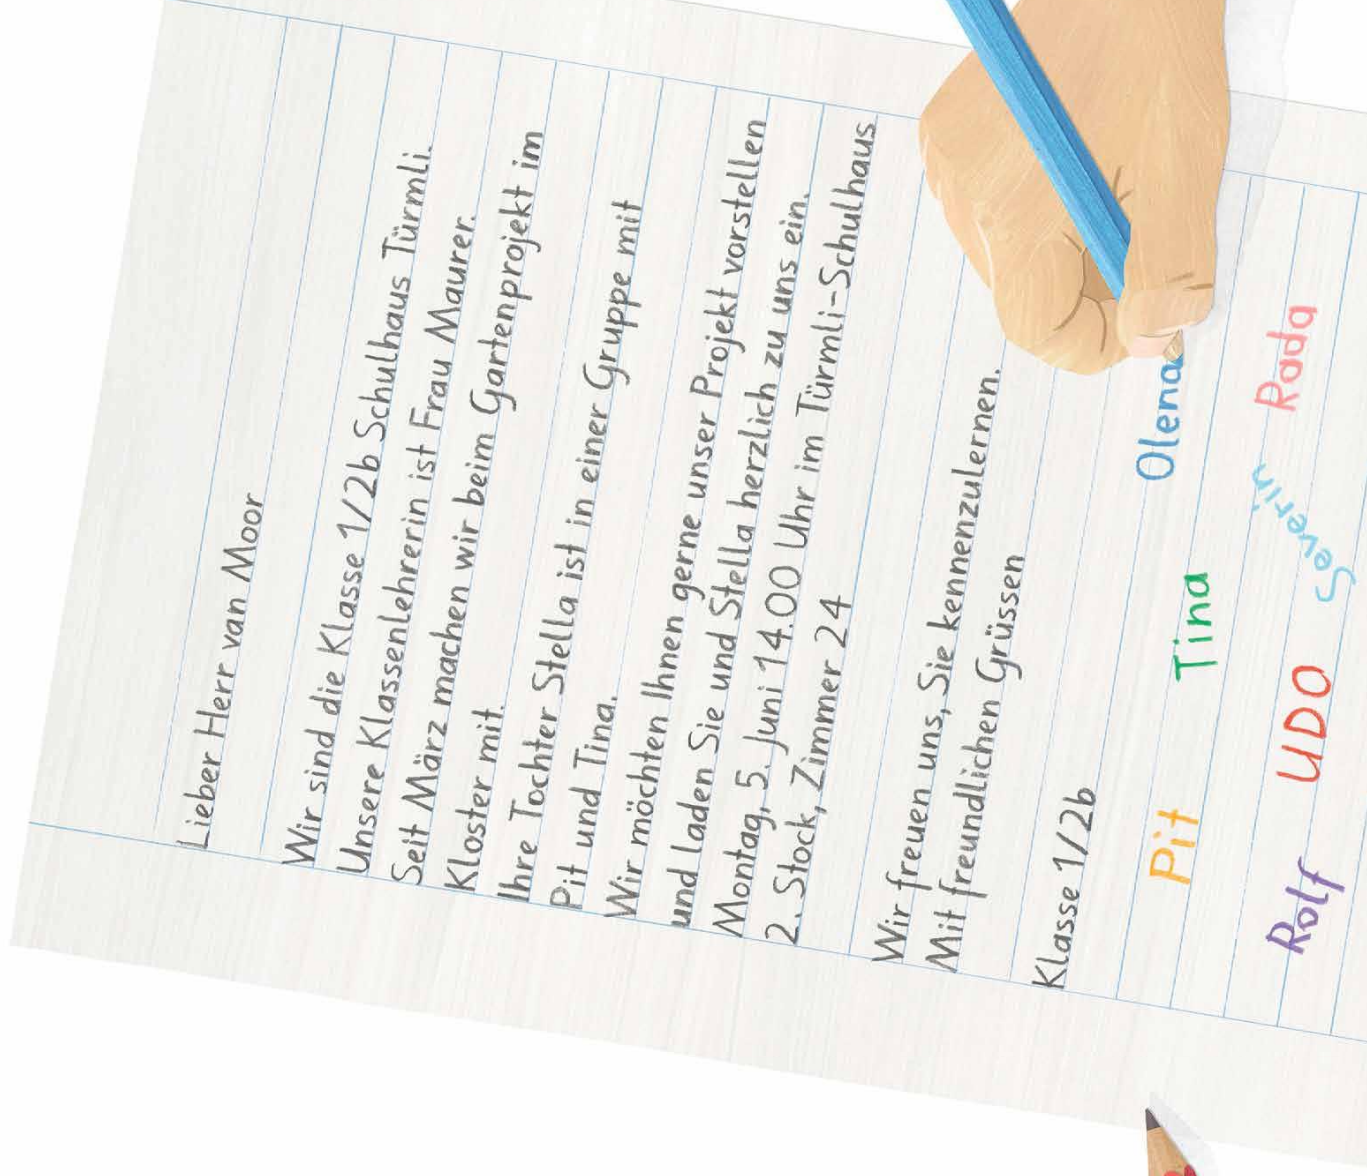 Lieber Herr van Moor
Wir sind die Klasse 1/2b Schulhaus Türmli.
Unsere Klassenlehrerin ist Frau Maurer.
Seit März machen wir beim Gartenprojekt im
Kloster mit.
Ihre Tochter Stella ist in einer Gruppe mit
Pit und Tina.
Wir möchten Ihnen gerne unser Projekt vorstellen
und laden Sie und Stella herzlich zu uns ein.
Montag, 5. Juni 14.00 Uhr im Türmli-Schulhaus
2. Stock, Zimmer 24
Wir freuen uns, Sie kennenzulernen.
Mit freundlichen Grüssen
Klasse 1/2b
Pit Tina Olena
Rolf UDO Severin Rada